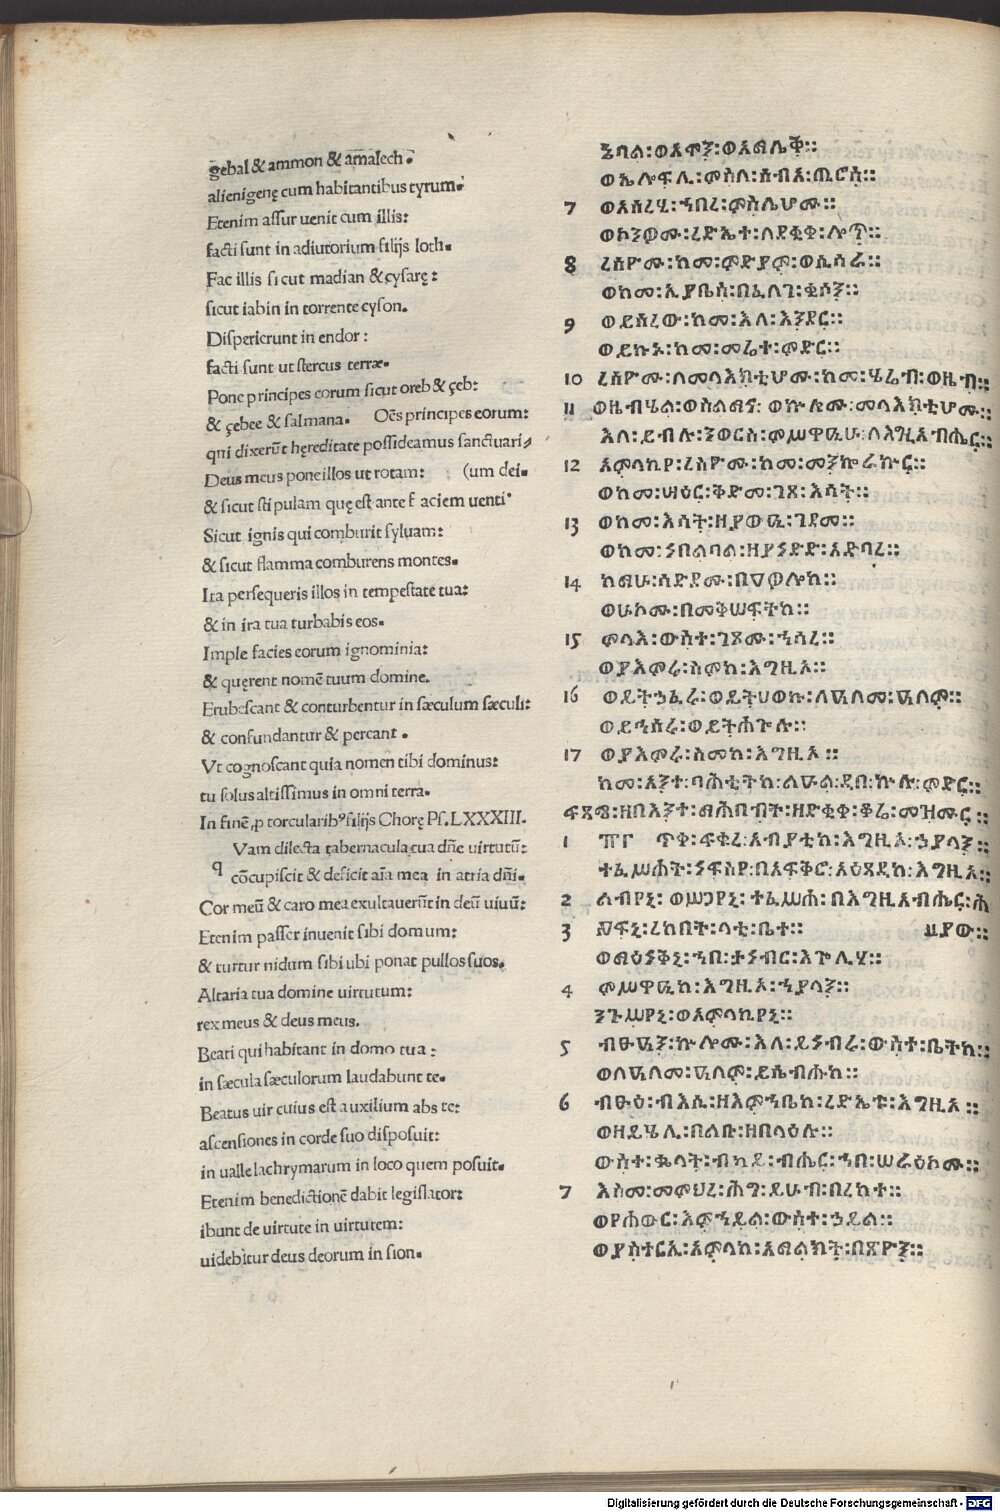 gebal & ammon & amalech.
alienigenę cum habitantibus tyrum.
Etenim assur uenit cum illis:
facti sunt in adiutorium filijs loth.
Fac illis sicut madian & cysarę:
sicut iabin in torrente cyson.
Disperierunt in endor:
facti sunt ut stercus terræ.
Pone principes eorum sicut oreb & çeb:
& çebee & salmana. Oẽs principes eorum:
qui dixerũt hęreditate possideamus sanctuari⸗
Deus meus pone illos ut rotam: (um dei.
& sicut stipulam quę est ante faciem uenti
Sicut ignis qui comburit syluam:
& sicut flamma comburens montes.
Ita persequeris illos in tempestate tua:
& in ira tua turbabis eos.
Imple facies eorum ignominia:
& quęrent nomẽ tuum domine.
Erubescant & conturbentur in sæculum sæculi:
& confundantur & pereant.
Vt cognoscant quia nomen tibi dominus:
tu solus altissimus in omni terra.
In finẽ, ꝓ torcularibꝰ filijs Chorę Ps. LXXXIII.
qVam dilecta tabernacula tua dñe uirtutũ:
cõcupiscit & deficit aĩa mea in atria dñi.
Cor meũ & caro mea exultauerũt in deũ uiuũ:
Etenim passer inuenit sibi domum:
& turtur nidum sibi ubi ponat pullos suos.
Altaria tua domine uirtutum:
rex meus & deus meus.
Beati qui habitant in domo tua:
in sæcula sæculorum laudabunt te.
Beatus uir cuius est auxilium abs te:
ascensiones in corde suo disposuit:
in ualle lachrymarum in loco quem posuit.
Etenim benedictionẽ dabit legislator:
ibunt de uirtute in uirtutem:
uidebitur deus deorum in sion.
ጌባል፡ወአሞን፡ወአማሌቅ።
ወኢሎፍሊ፡ምስለ፡ሰብአ፡ጢሮስ።
7 ወአሰረሂ፡ኀበረ፡ምስሌሆሙ።
ወኮንዎሙ፡ረድኤተ፡ለደቂቀ፡ሎጥ።
8 ረስዮሙ፡ከመ፡ምድያም፡ወሲሳራ።
ወከመ፡ኢያቤስ፡በፈለገ፡ቂሶን።
9 ወይሰረው፡ከመ፡እለ፡እንዶር።
ወይኩኑ፡ከመ፡መሬተ፡ምድር።
10 ረስዮሙ፡ለመላእክቲሆሙ፡ከመ፡ሄሬብ፡ወዜብ።
11 ወዜብሄል፡ወስልማና፡ወኵሉሙ፡መላእክቲሆሙ።
እለ፡ይብሉ፡ንወርስ፡ምሥዋዒሁ፡ለእግዚአብሔር።
12 አምላኪየ፡ረስዮሙ፡ከመ፡መንኰራኵር።
ወከመ፡ሣዕር፡ቅድመ፡ገጸ፡እሳት።
13 ወከመ፡እሳት፡ዘያውዒ፡ገዳመ።
ወከመ፡ነበልባል፡ዘያነድድ፡አድባረ።
14 ከማሁ፡ስድዶሙ፡በዐውሎከ።
ወሁኮሙ፡በመቅሠፍትከ።
15 ምላእ፡ውስተ፡ገጾሙ፡ኀሳረ።
ወያእምሩ፡ስምከ፡እግዚኦ።
16 ወይትኃፈሩ፡ወይትሀወኩ፡ለዓለመ፡ዓለም።
ወይኀሰሩ፡ወይትሐጐሉ።
17 ወያእምሩ፡ስመከ፡እግዚኦ።
ከመ፡አንተ፡ባሕቲትከ፡ልዑል፡ዲበ፡ኵሉ፡ምድር።
ፍጻሜ፡ዘበእንተ፡ማሕበብት፡ዘደቂቀ፡ቆሬ፡መዝሙር።
1 ፹፫ ጥቀ፡ፍቁረ፡አብያቲከ፡እግዚኦ፡ኃያላን።
ተፈሥሐት፡ነፍስየ፡በአፍቅሮ፡አዕጻዲከ፡እግዚኦ።
2 ልብየኒ፡ወሥጋየኒ፡ተፈሥሐ፡በእግዚአብሔር፡ሕ
3 ዖፍኒ፡ረከበት፡ላቲ፡ቤተ። ያው።
ወማዕነቅኒ፡ኀበ፡ታነብር፡እጐሊሃ።
4 ምሥዋዒከ፡እግዚኦ፡ኀያላን።
ንጉሥየኒ፡ወአምላኪየኒ።
5 ብፁዓን፡ኵሎሙ፡እለ፡ይነብሩ፡ውስተ፡ቤትከ።
ወለዓለመ፡ዓለም፡ይሴብሑከ።
6 ብፁዕ፡ብእሲ፡ዘእምኀቤከ፡ረድኤቱ፡እግዚኦ።
ወዘይሄሊ፡በልቡ፡ዘበላዕሉ።
ውስተ፡ቈላት፡ብካይ፡ብሔር፡ኀበ፡ሠራዕኮሙ።
7 እስመ፡መምህረ፡ሕግ፡ይሁብ፡በረከተ።
ወየሐውር፡እምኀይል፡ውስተ፡ኃይል።
ወያስተርኢ፡አምላከ፡አማልክት፡በጽዮን።
Digitalisierung gefördert durch die Deutsche Forschungsgemeinschaft - DFG